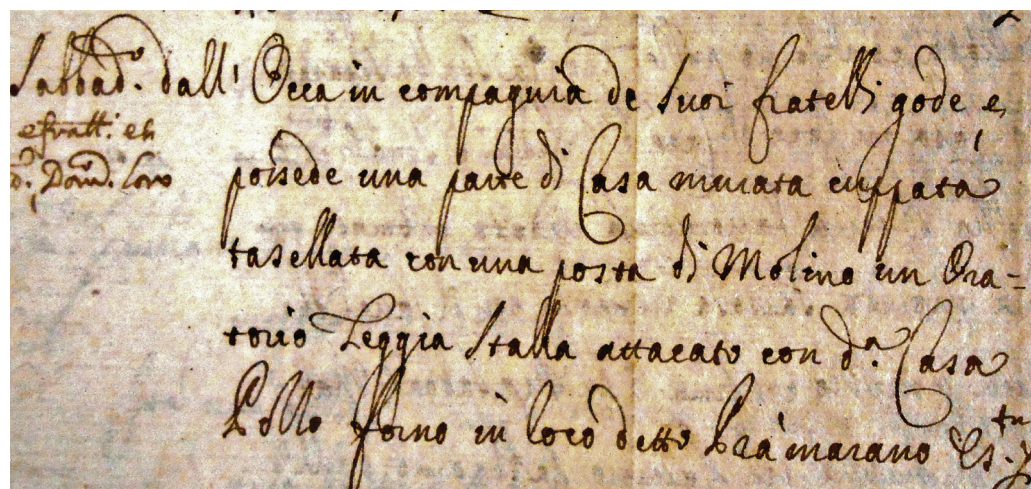 Sabbad.º dall' Occa in compagnia de suoi fratelli gode e
e fratt.i eh
q. Dom.º loro
possede una parte di Casa murata cuppata
tasellata con una posta di Molino un Ora=
torio Teggia Stalla attacato con d.ª Casa
Pollo forno in loco detto Prà marano